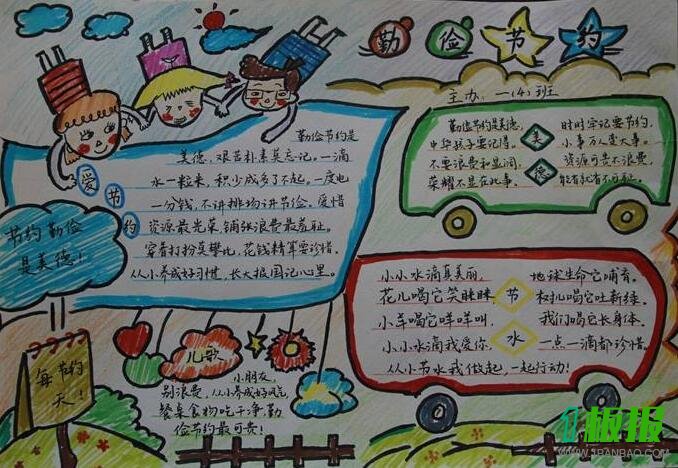 勤俭节约
主办:一(4)班
勤俭节约是
美德,艰苦朴素莫忘记。一滴
水一粒米,积少成多了不起。一度电
一分钱,不讲排场讲节俭。爱惜
资源最光荣,铺张浪费最羞耻。
穿着打扮莫攀比,花钱精算要珍惜
从小养成好习惯,长大报国记心里。
爱节约
节约勤俭
是美德!
每节约
天!
勤俭节约是美德,
中华孩子要记得。
不要浪费和显阔,
荣耀不显在此事。
美德
时时牢记要节约,
小事万人变大事。
资源可贵不浪费,
小小水滴真美丽,
花儿喝它笑眯眯
小羊喝它咩咩叫,
小小水滴我爱你,
节水
地球生命它哺育。
树儿喝它吐新绿。
我们喝它长身体。
一点一滴都珍惜。
从小节水我做起,一起行动!
儿歌
小朋友,
别浪费,从小养成好习气
餐桌食物吃干净,勤
俭节约最可贵!
板报
WWW.1BANBAO.COM